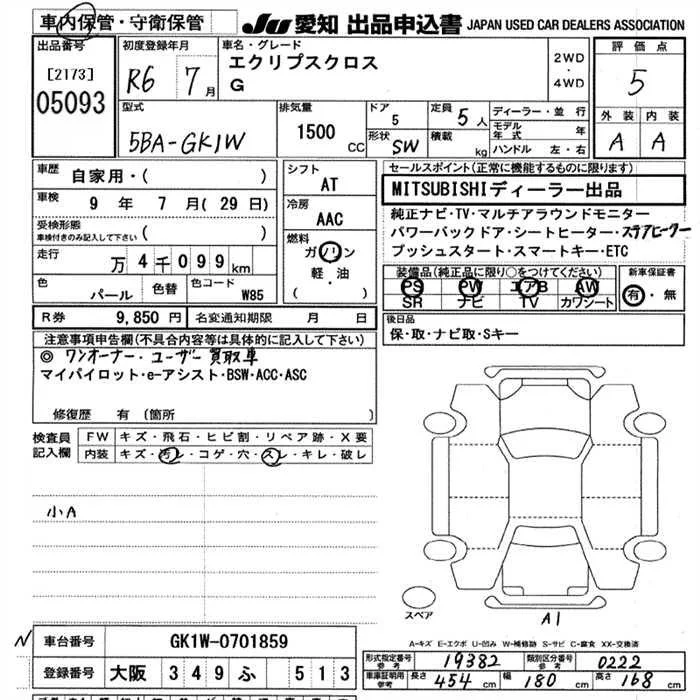 車内保管・守衛保管 JU 愛知 出品申込書 JAPAN USED CAR DEALERS ASSOCIATION
出品番号
[2173]
05093
初度登録年月
R6 7月
車名・グレード
エクリプスクロス
G
2WD
・
4WD
評価点
5
外装 内装
A A
型式
5BA-GK1W
排気量
1500 CC
ドア
5
形状 SW
定員 5人
積載 kg
ディーラー・並行
モデル年式 年
ハンドル 左・右
車歴
自家用・( )
車検 9年 7月(29日)
受検形態
車検付きのみ記入して下さい ( )
走行
万4千099km
色 パール 色替 色コード W85
シフト
AT
冷房
AAC
燃料
ガソリン
軽・油
( )
セールスポイント(正常に機能するものに限ります)
MITSUBISHIディーラー出品
純正ナビ・TV・マルチアラウンドモニター
パワーバックドア・シートヒーター・ステアヒーター
プッシュスタート・スマートキー・ETC
装備品(純正品に限り○をつけてください)
PS PW エアB AW
SR ナビ TV カワシート
新車保証書
有・無
R券 9,850円 名変通知期限 月 日
後日品
保・取・ナビ取・Sキー
注意事項申告欄(不具合内容等は具体的に記入して下さい)
◎ ワンオーナー・ユーザー買取車
マイパイロット・e-アシスト・BSW・ACC・ASC
修復歴 有(箇所 )
検査員記入欄
FW キズ・飛石・ヒビ割・リペア跡・X要
内装 キズ・汚レ・コゲ・穴・スレ・キレ・破レ
小A
スペア
A1
A-キズ E-エクボ U-凹み W-補修跡 S-サビ C-腐食 XX-交換済
N 車台番号 GK1W-0701859
登録番号 大阪 349 ふ 513
形式指定番号参考 19382 類別区分番号参考 0222
車庫証明用参考 長さ 454cm 幅 180cm 高さ 168cm